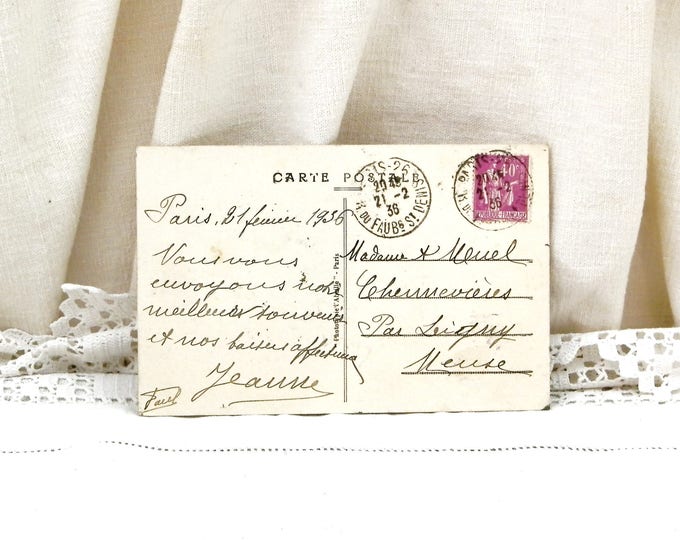 CARTE POSTALE
PARIS-25
20 45
21 -2
36
R. DU FAUBG ST DENIS
40c
REPUBLIQUE-FRANCAISE
Paris, 21 février 1936
Vous vous
envoyons nos
meilleurs souvenirs
et nos baisers affectueux
Jeanne
Paul
Paris
Madame
Chennevières
Par Ligny
Meuse